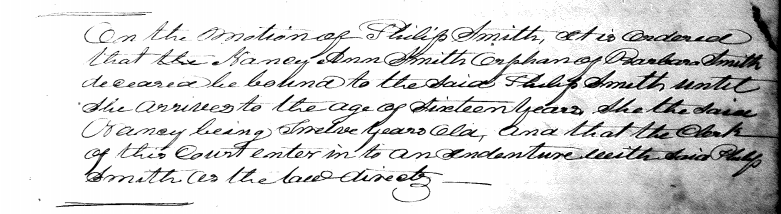 On the Motion of Philip Smith, It is Ordered
that the Nancy Ann Smith Orphan of Barbara Smith
deceased be bound to the said Philip Smith until
she arrives to the age of Sixteen Years, She the said
Nancy being Twelve Years Old, and that the Clerk
of this Court enter in to an Indenture with said Philip
Smith as the law directs